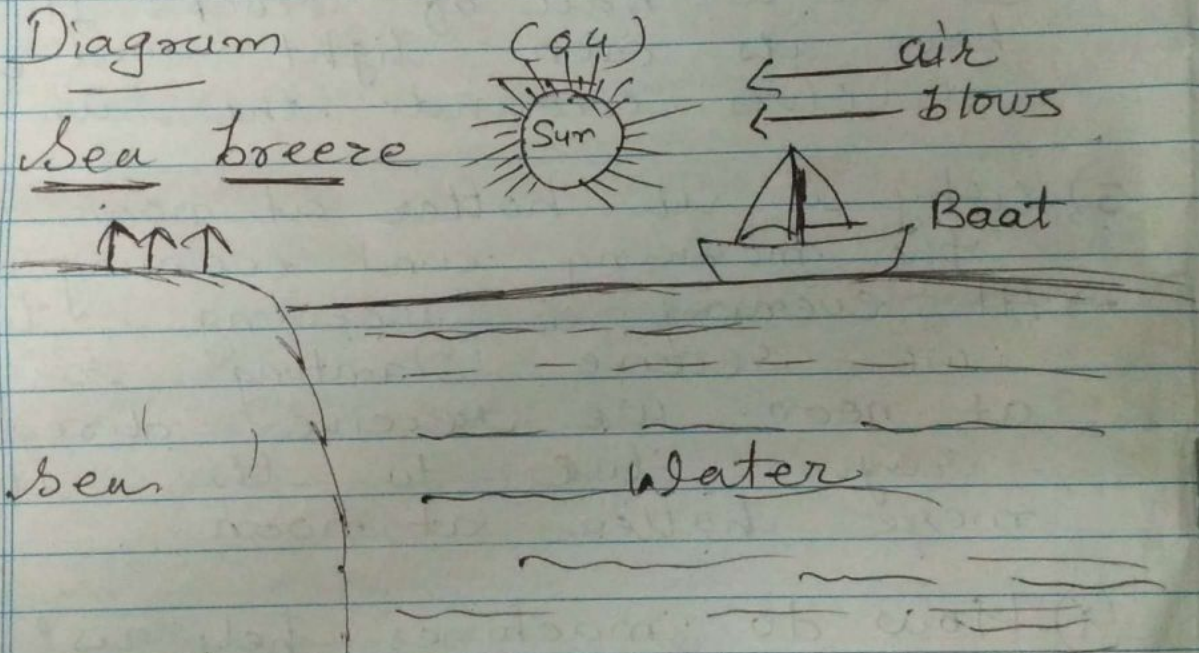 Diagram
(Q4)
air
blows
Sea breeze
Sun
Boat
Sea
Water